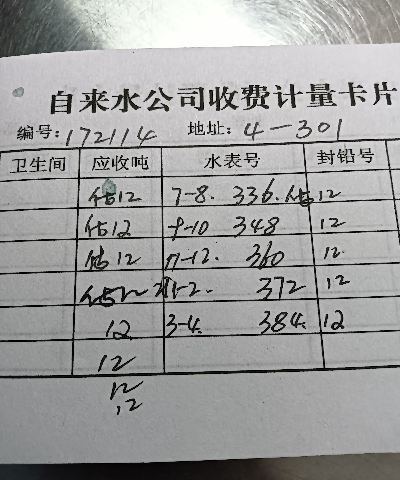 自来水公司收费计量卡片
编号:172114 地址:4-301
卫生间 应收吨 水表号 封铅号
估12 7-8. 336.估12
估12 9-10 348 12
估12 11-12. 360 12.
估12 1-2. 372 12
12 3-4. 384. 12
12
12
12